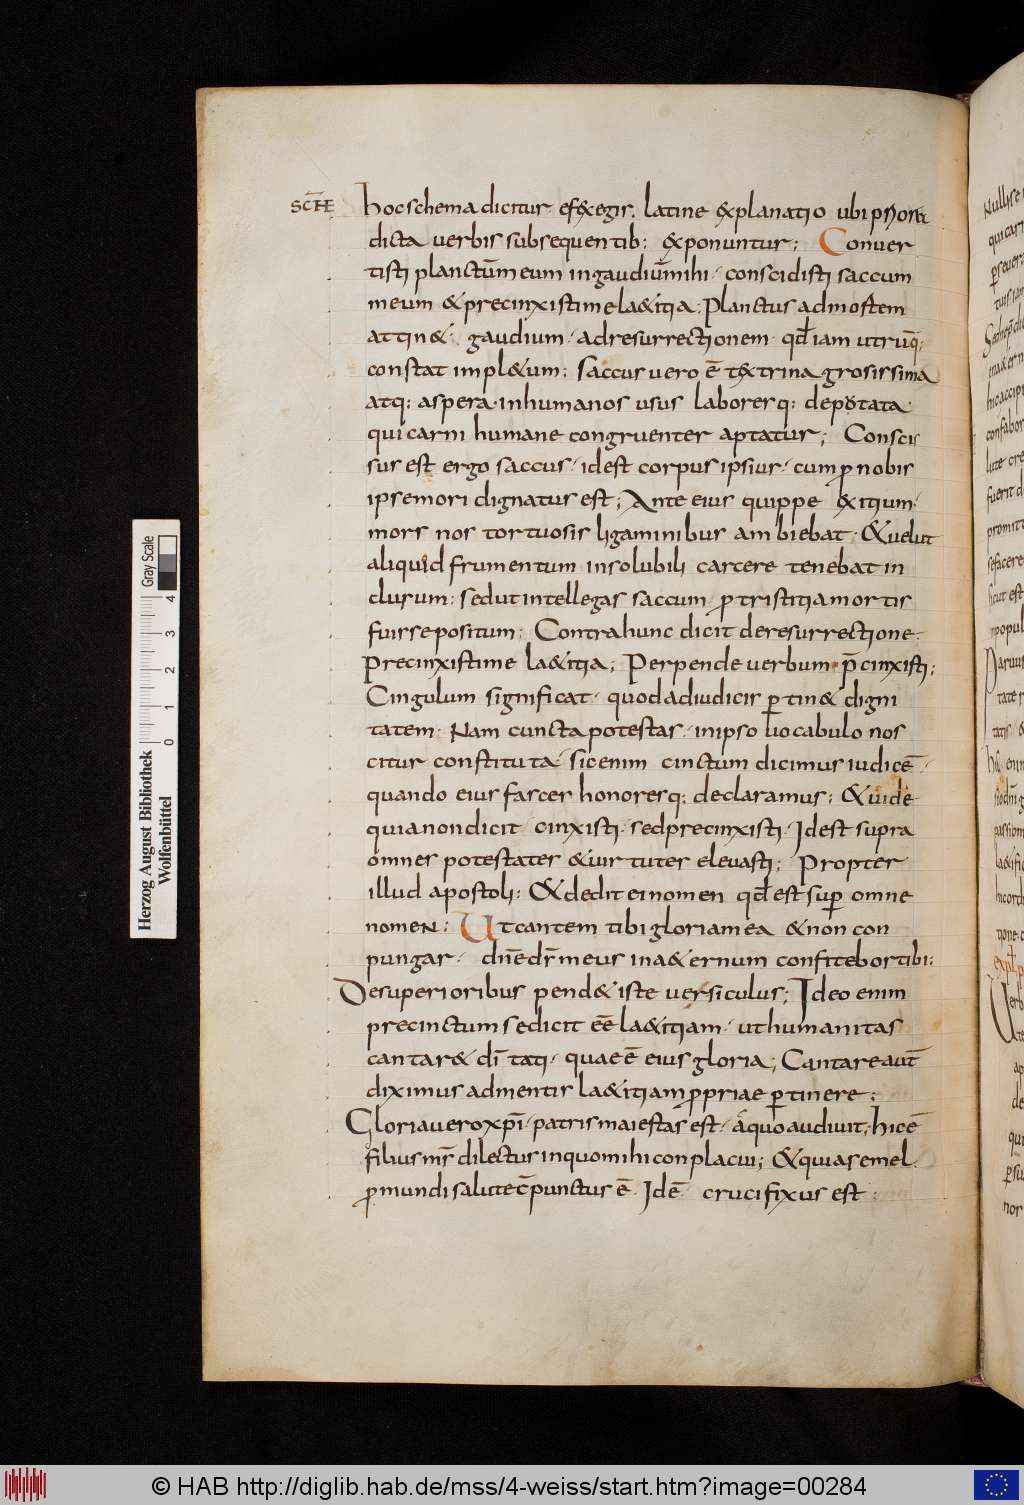 SCHE
hoc schema dicitur · ef&xegis. latine &xplanatio ubi priora
dicta verbis subsequentib: exponuntur; Conver
tisti planctum meum in gaudium mihi · conscidisti saccum
meum & precinxisti me lætitia · Planctus ad mortem
attin& · gaudium · ad resurrectionem · qđ iam utrūq;
constat impl&um: saccus vero ē textrina grosissima
atq: aspera · inhumanos usus laboresq: deputata ·
qui carni humane congruenter aptatur; Conscis
sus est ergo saccus · idest corpus ipsius · cum ꝓ nobis
ipse mori dignatus est; Ante eius quippe exitium ·
mors nos tortuosis ligaminibus ambiebat · & velut
aliquid frumentum insolubili carcere tenebat in
clusum: sed ut intellegas saccum · ꝓ tristitia mortis
fuisse positum: Contra hunc dicit de resurrectione ·
Precinxisti me læ&itia; Perpende verbum p̄cinxisti;
Cingulum significat · quod ad iudicis ꝑtin& digni
tatem · Nam cuncta potestas · in ipso vocabulo nos
citur constituta · sic enim cinctum dicimus iudicē ·
quando eius fasces honoresq: declaramus; & vide ·
quia non dicit cinxisti · sed precinxisti · Idest supra
omnes potestates & virtutes elevasti; Propter
illud apostoli: & dedit ei nomen qđ est suꝑ omne
nomen: Ut cantem tibi gloria mea & non con
pungar · dn̄e dš meus in æ&ernum confitebor tibi:
De superioribus pend& iste versiculus; Ideo enim
precinctum se dicit eē læ&itiam · ut humanitas
cantar& di̅tati · quae ē eius gloria; Cantare aut̄
diximus ad mentis læ&itiam ꝓpriae ꝑtinere;
Gloria vero xp̄i · patris maiestas est · a quo audivit, hic ē
filius m̄s dilectus in quo mihi conplacui; & quia semel
ꝓ mundi salute c̄punctus ē · Idē crucifixus est:
Herzog August Bibliothek
Wolfenbüttel
0 1 2 3 4
Gray Scale
© HAB http://diglib.hab.de/mss/4-weiss/start.htm?image=00284